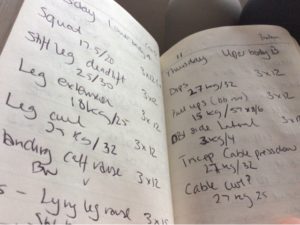 Lower
Squat
17.5/20 3x12
Stiff leg deadlift
25/30 3x12
Leg extension
18kg/25 3x12
Leg curl
27 kg/32 3x12
Standing calf raise
BW 3x12
Lying leg raise 3x
11
Thursday Upper body B
Dips 3x12
27kg/32
Pull ups 3x12
15 kg
DB side lateral
3kg/4 3x12
Tricep Cable pressdown
27kg/32 3x12
Cable curl?
27 kg 25